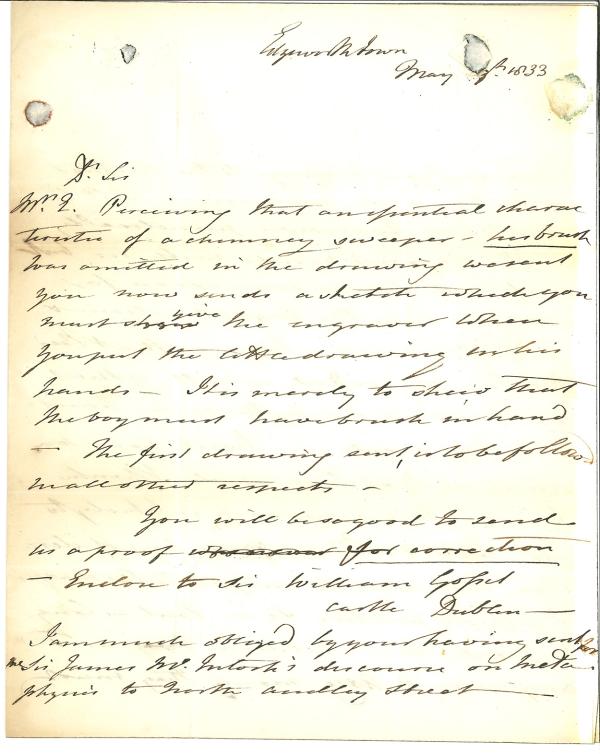 Edgeworth Town
May 1833
Dr. Sir
Mr. E. Perceiving that an essential charac
teristic of a chimney sweeper - his brush
was omitted in the drawing we sent
you now sends a sketch which you
must give the engraver when
you put the little drawing in his
hands — It is merely to shew that
the boy must have brush in hand
— The first drawing sent, is to be followed
in all other respects —
You will be so good to send
us a proof for correction
— Enclose to Sir William Gosset
Castle Dublin —
I am much obliged by your having sent for
me Sir James McIntosh's discourse on Meta
physics to North Audley Street —